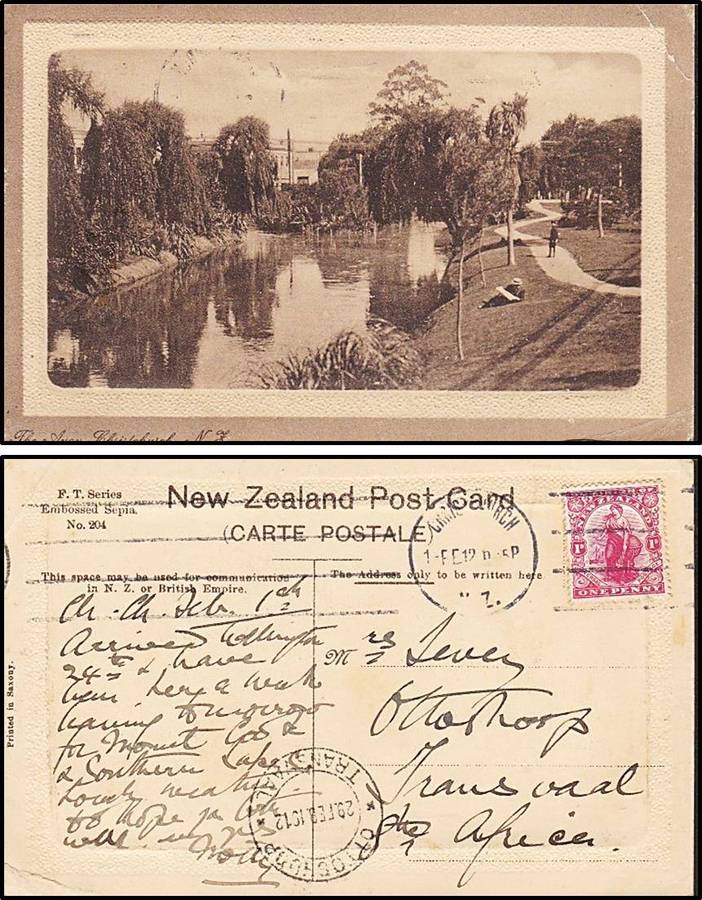 The Avon, Christchurch, N.Z.
F. T. Series
Embossed Sepia,
No. 204
New Zealand Post Card
(CARTE POSTALE)
This space may be used for communication
in N. Z. or British Empire.
The Address only to be written here
CHRISTCHURCH
1-FE12 -5P
N.Z.
N ZEALAND
1D 1D
ONE PENNY
Printed in Saxony.
Ch. Ch. Feb. 1st
Arrived Wellington
24th & have
been here a week
leaving tomorrow
for Mount Cook
& Southern Lakes
Lovely weather.
hope
well
Mrs
Ottoshoop
Transvaal
Sth Africa.
OTTOSHOOP
TRANSVAAL
29 FEB 1912